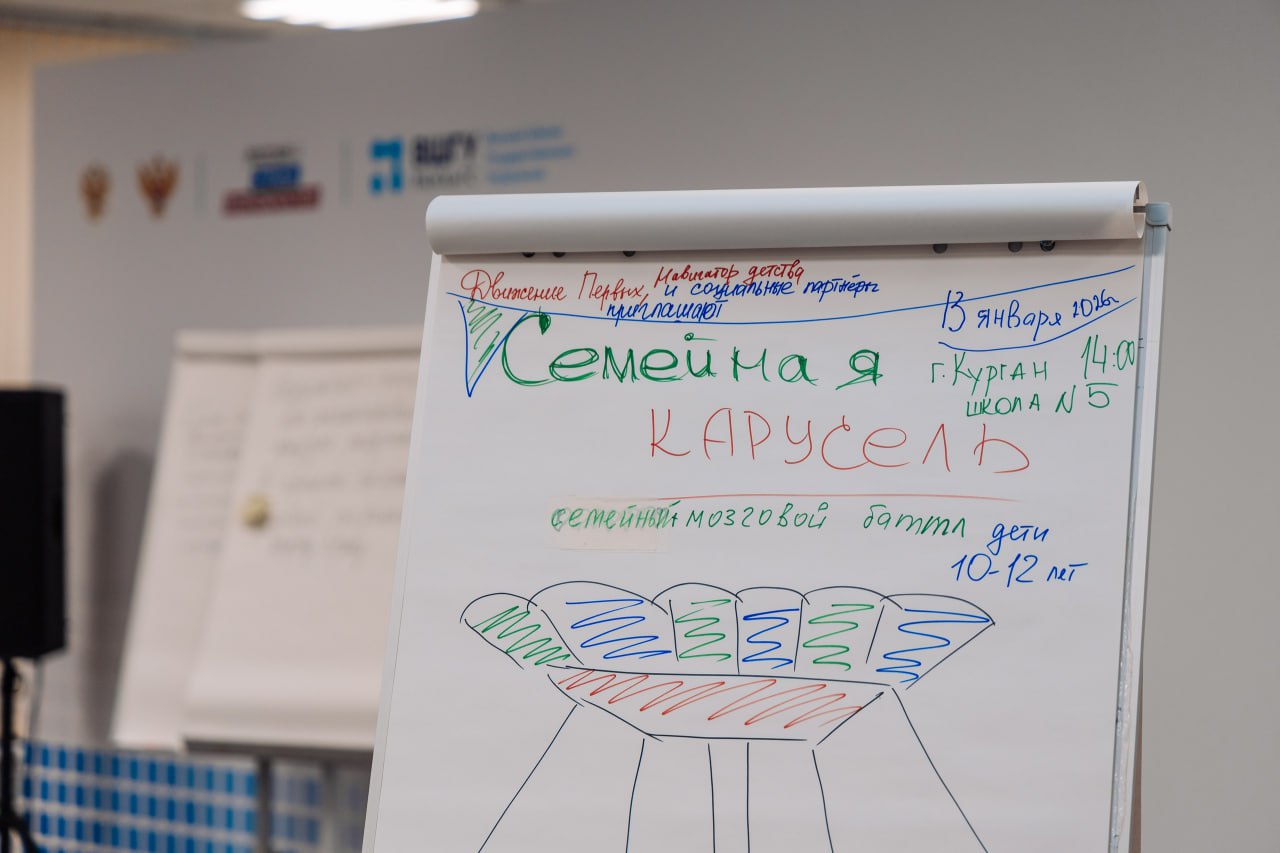 ВШГУ
Движение Первых, Навигатор детства
и социальные партнёры
приглашают
13 января 2026г.
Семейная
г. Курган 14:00
школа N 5
КАРУСЕЛЬ
семейный мозговой баттл
дети
10-12 лет